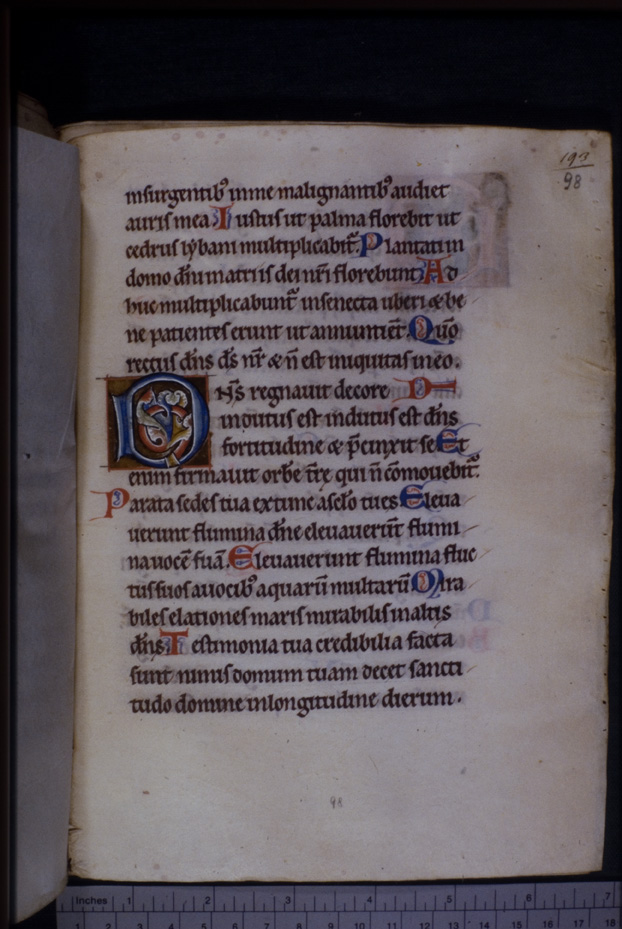 193
98
insurgentibꝰ inme malignantibꝰ audiet
auris mea. Iustus ut palma florebit ut
cedrus lẏbani multiplicabit᷑. Plantati in
domo dn̄i in atriis dei nr̄i florebunt. Ad
huc multiplicabunt᷑ insenecta uberi & be
ne patientes erunt ut annuntient᷑. Quō
rectus dn̄s d̄s nr̄ & n̄ est iniquitas ineo.
DN̄S regnauit decore
indutus est indutus est dn̄s
fortitudine & p̄cinxit se. Et
enim firmauit orbē tr̄e qui n̄ cōmouebit᷑.
Parata sedes tua extunc aselo tues. Eleua
uerunt flumina dn̄e eleuauerūt flumi
na uocē suā. Eleuauerunt flumina fluc
tus suos auocibꝰ aquarū multarū. Mira
biles elationes maris mirabilis inaltis
dn̄s. Testimonia tua credibilia facta
sunt nimis domum tuam decet sancti
tudo domine inlongitudine dierum.
98
Inches 1 2 3 4 5 6 7
1 2 3 4 5 6 7 8 9 10 11 12 13 14 15 16 17 18